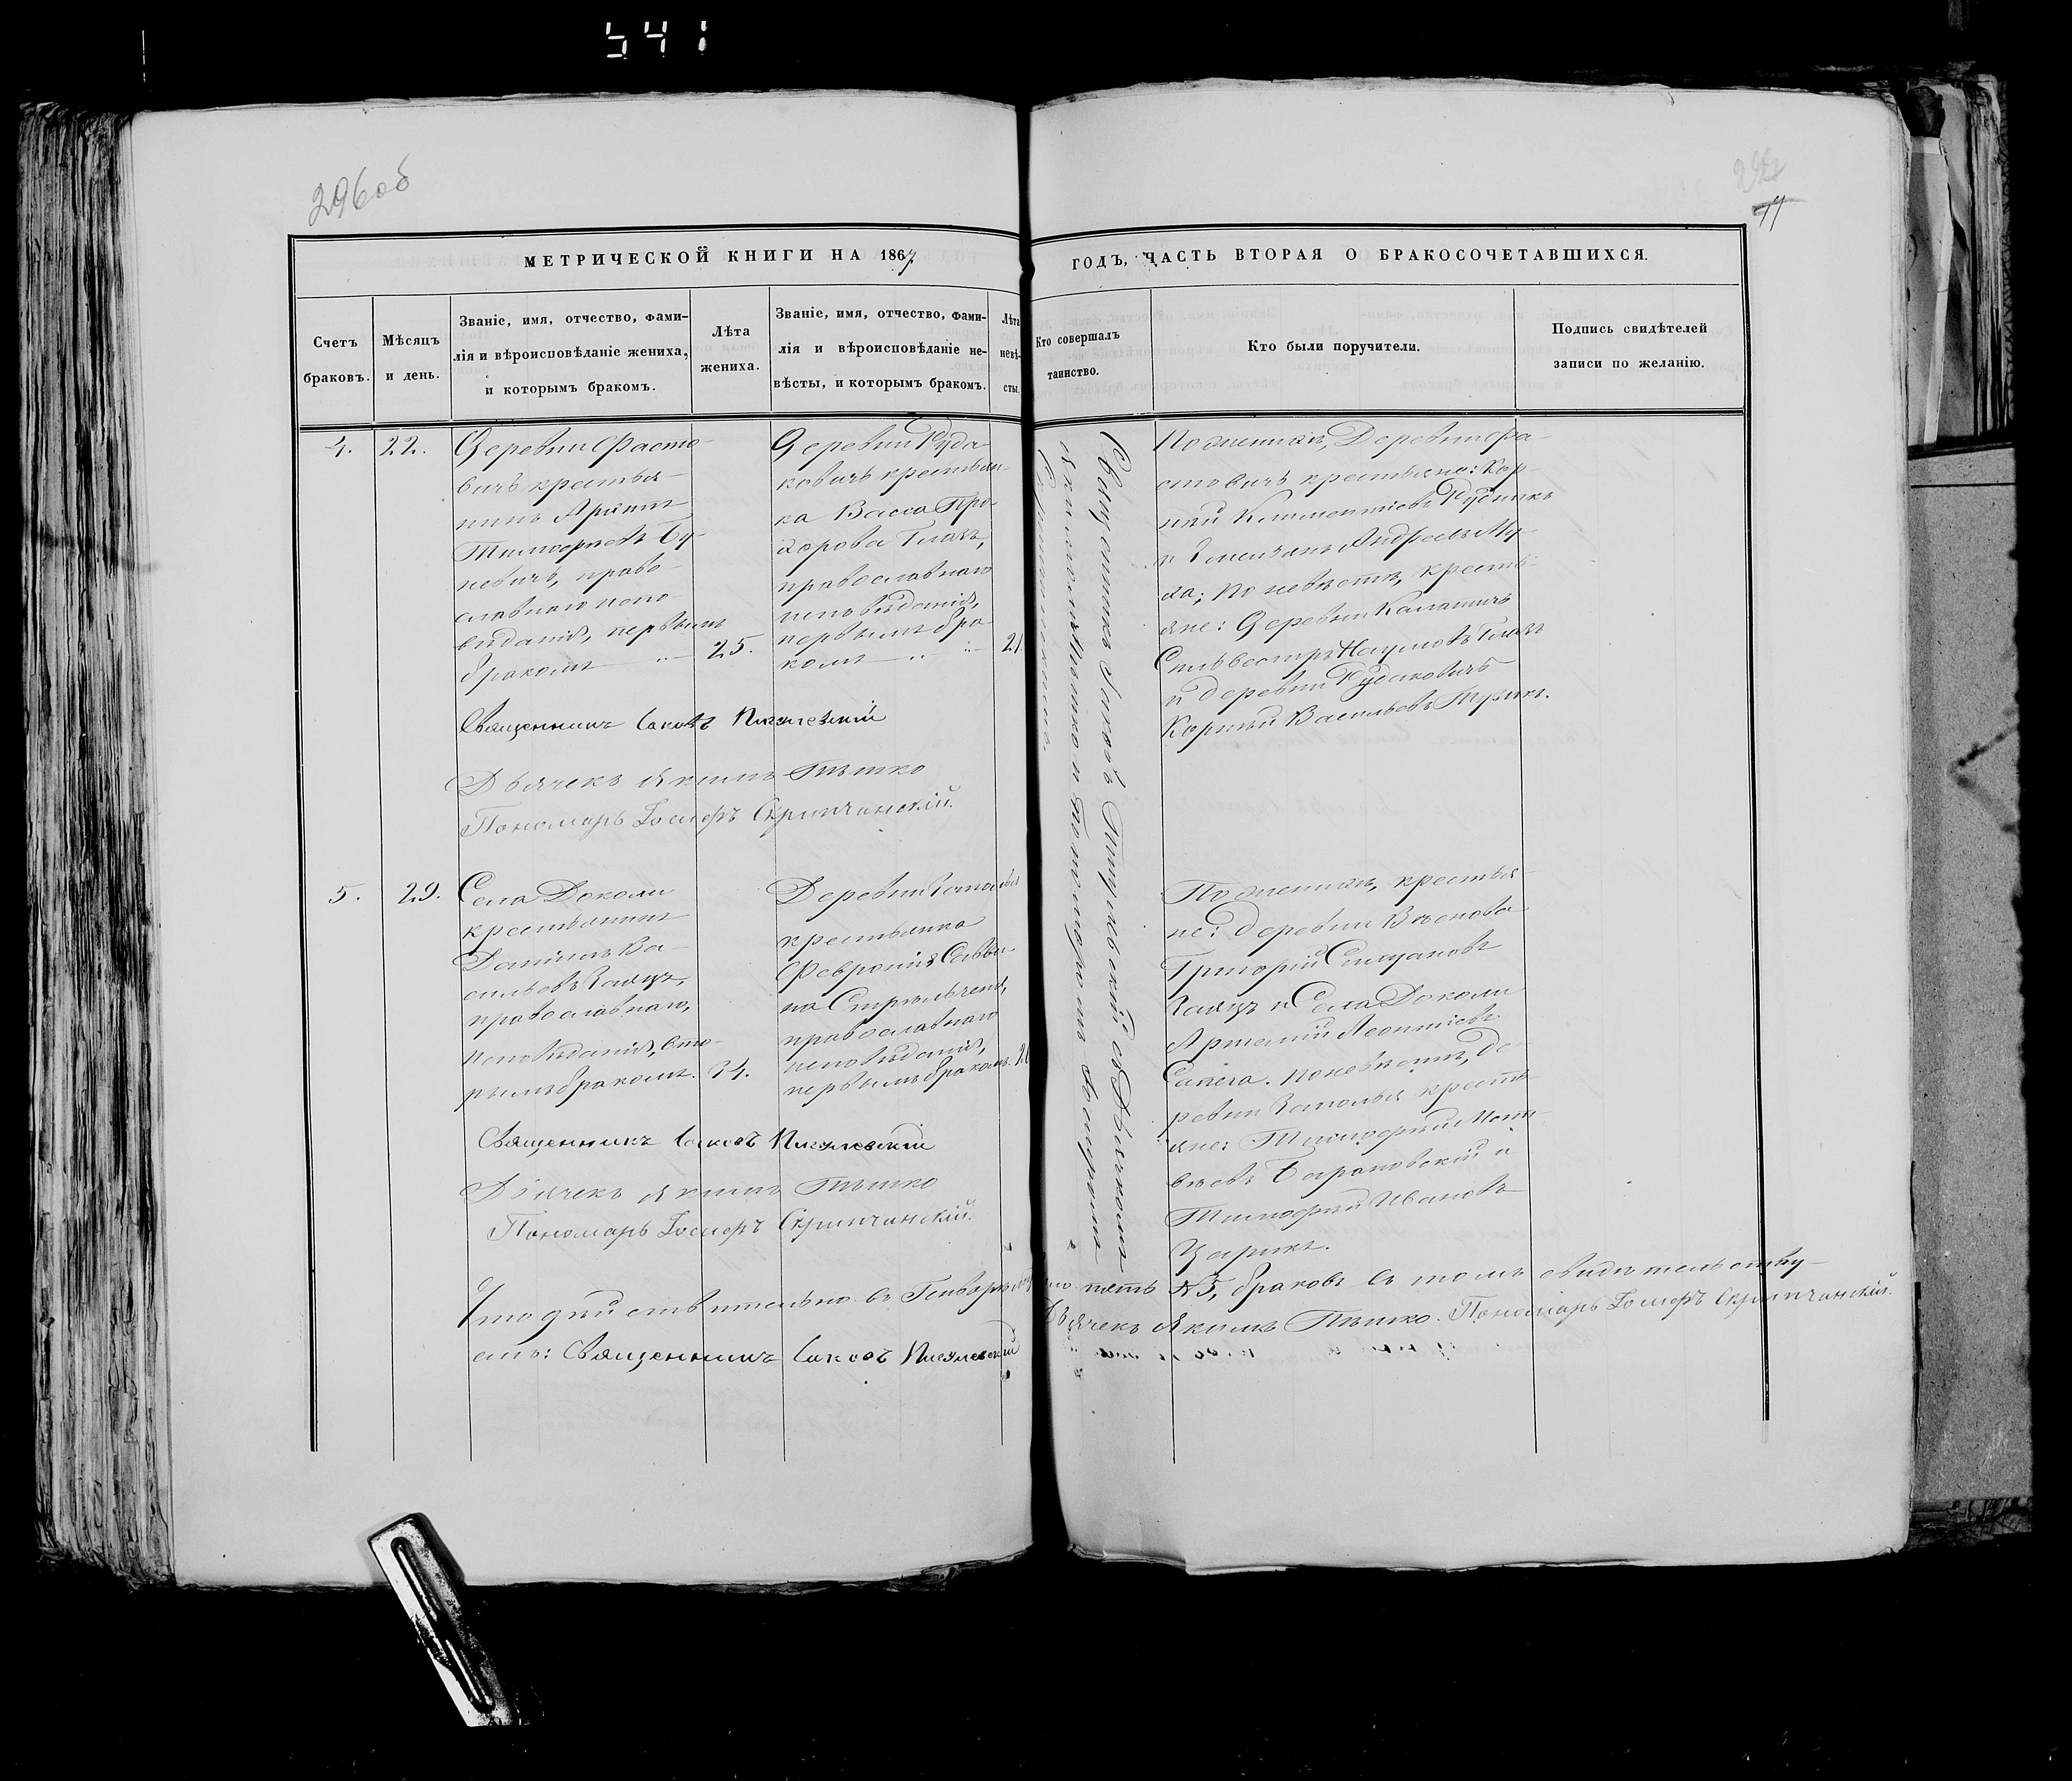 541
296об
77
МЕТРИЧЕСКОЙ КНИГИ НА 1867
ГОДЪ, ЧАСТЬ ВТОРАЯ О БРАКОСОЧЕТАВШИХСЯ.
Счетъ
браковъ.
Мѣсяцъ
и день.
Званіе, имя, отчество, фами-
лія и вѣроисповѣданіе жениха,
и которымъ бракомъ.
Лѣта
жениха.
Званіе, имя, отчество, фами-
лія и вѣроисповѣданіе не-
вѣсты, и которымъ бракомъ.
Лѣта
невѣ-
сты.
Кто совершалъ
таинство.
Кто были поручители.
Подпись свидѣтелей
записи по желанію.
4.
22.
Деревни Фасто-
вичъ крестья-
нинъ
Тимофеевъ Бу-
невичъ, право-
славнаго испо-
вѣданія, первымъ
бракомъ
25.
Деревни Руда-
ковичъ крестьян-
ка Васса Про-
хорова Глазъ,
православнаго
исповѣданія,
первымъ бра-
комъ
21.
Священникъ Іаковъ Пигулевскій съ Дьячкомъ
Якимомъ Тѣшко и Пономаремъ Іосифомъ
Скрипчинскимъ.
По женихѣ, Деревни Фа-
стовичъ крестьяне: Кор-
ній Климентіевъ Рудникъ
и Емельянъ Андреевъ Му-
ха; по невѣстѣ, кресть-
яне: Деревни Калатичъ
Сильвестръ Наумовъ Глазъ
и деревни Рудаковичъ
Корній Васильевъ
Священникъ Іаковъ Пигулевскій
Дьячекъ Якимъ Тѣшко
Пономарь Іосифъ Скрипчинскій.
5.
29.
Села Доколи
крестьянинъ
Даніилъ Ва-
сильевъ Заяцъ,
православнаго
исповѣданія, вто-
рымъ бракомъ.
34.
Деревни Заполья
крестьянка
Февронія Савви-
на
православнаго
исповѣданія,
первымъ бракомъ.
По женихѣ, крестья-
не: деревни
Григорій Степановъ
Заяцъ и Села Доколи
Артемій Леонтіевъ
Сапега. По невѣстѣ, де-
ревни Заполья кресть-
яне: Тимофей Мат-
вѣевъ Барановскій и
Тимофей Ивановъ
Царикъ.
Священникъ Іаковъ Пигулевскій
Дьячекъ Якимъ Тѣшко
Пономарь Іосифъ Скрипчинскій.
Что дѣйствительно въ Генварѣ было пять №5, браковъ въ томъ свидѣтельству-
емъ: Священникъ Іаковъ Пигулевскій Дьячекъ Якимъ Тѣшко. Пономарь Іосифъ Скрипчинскій.